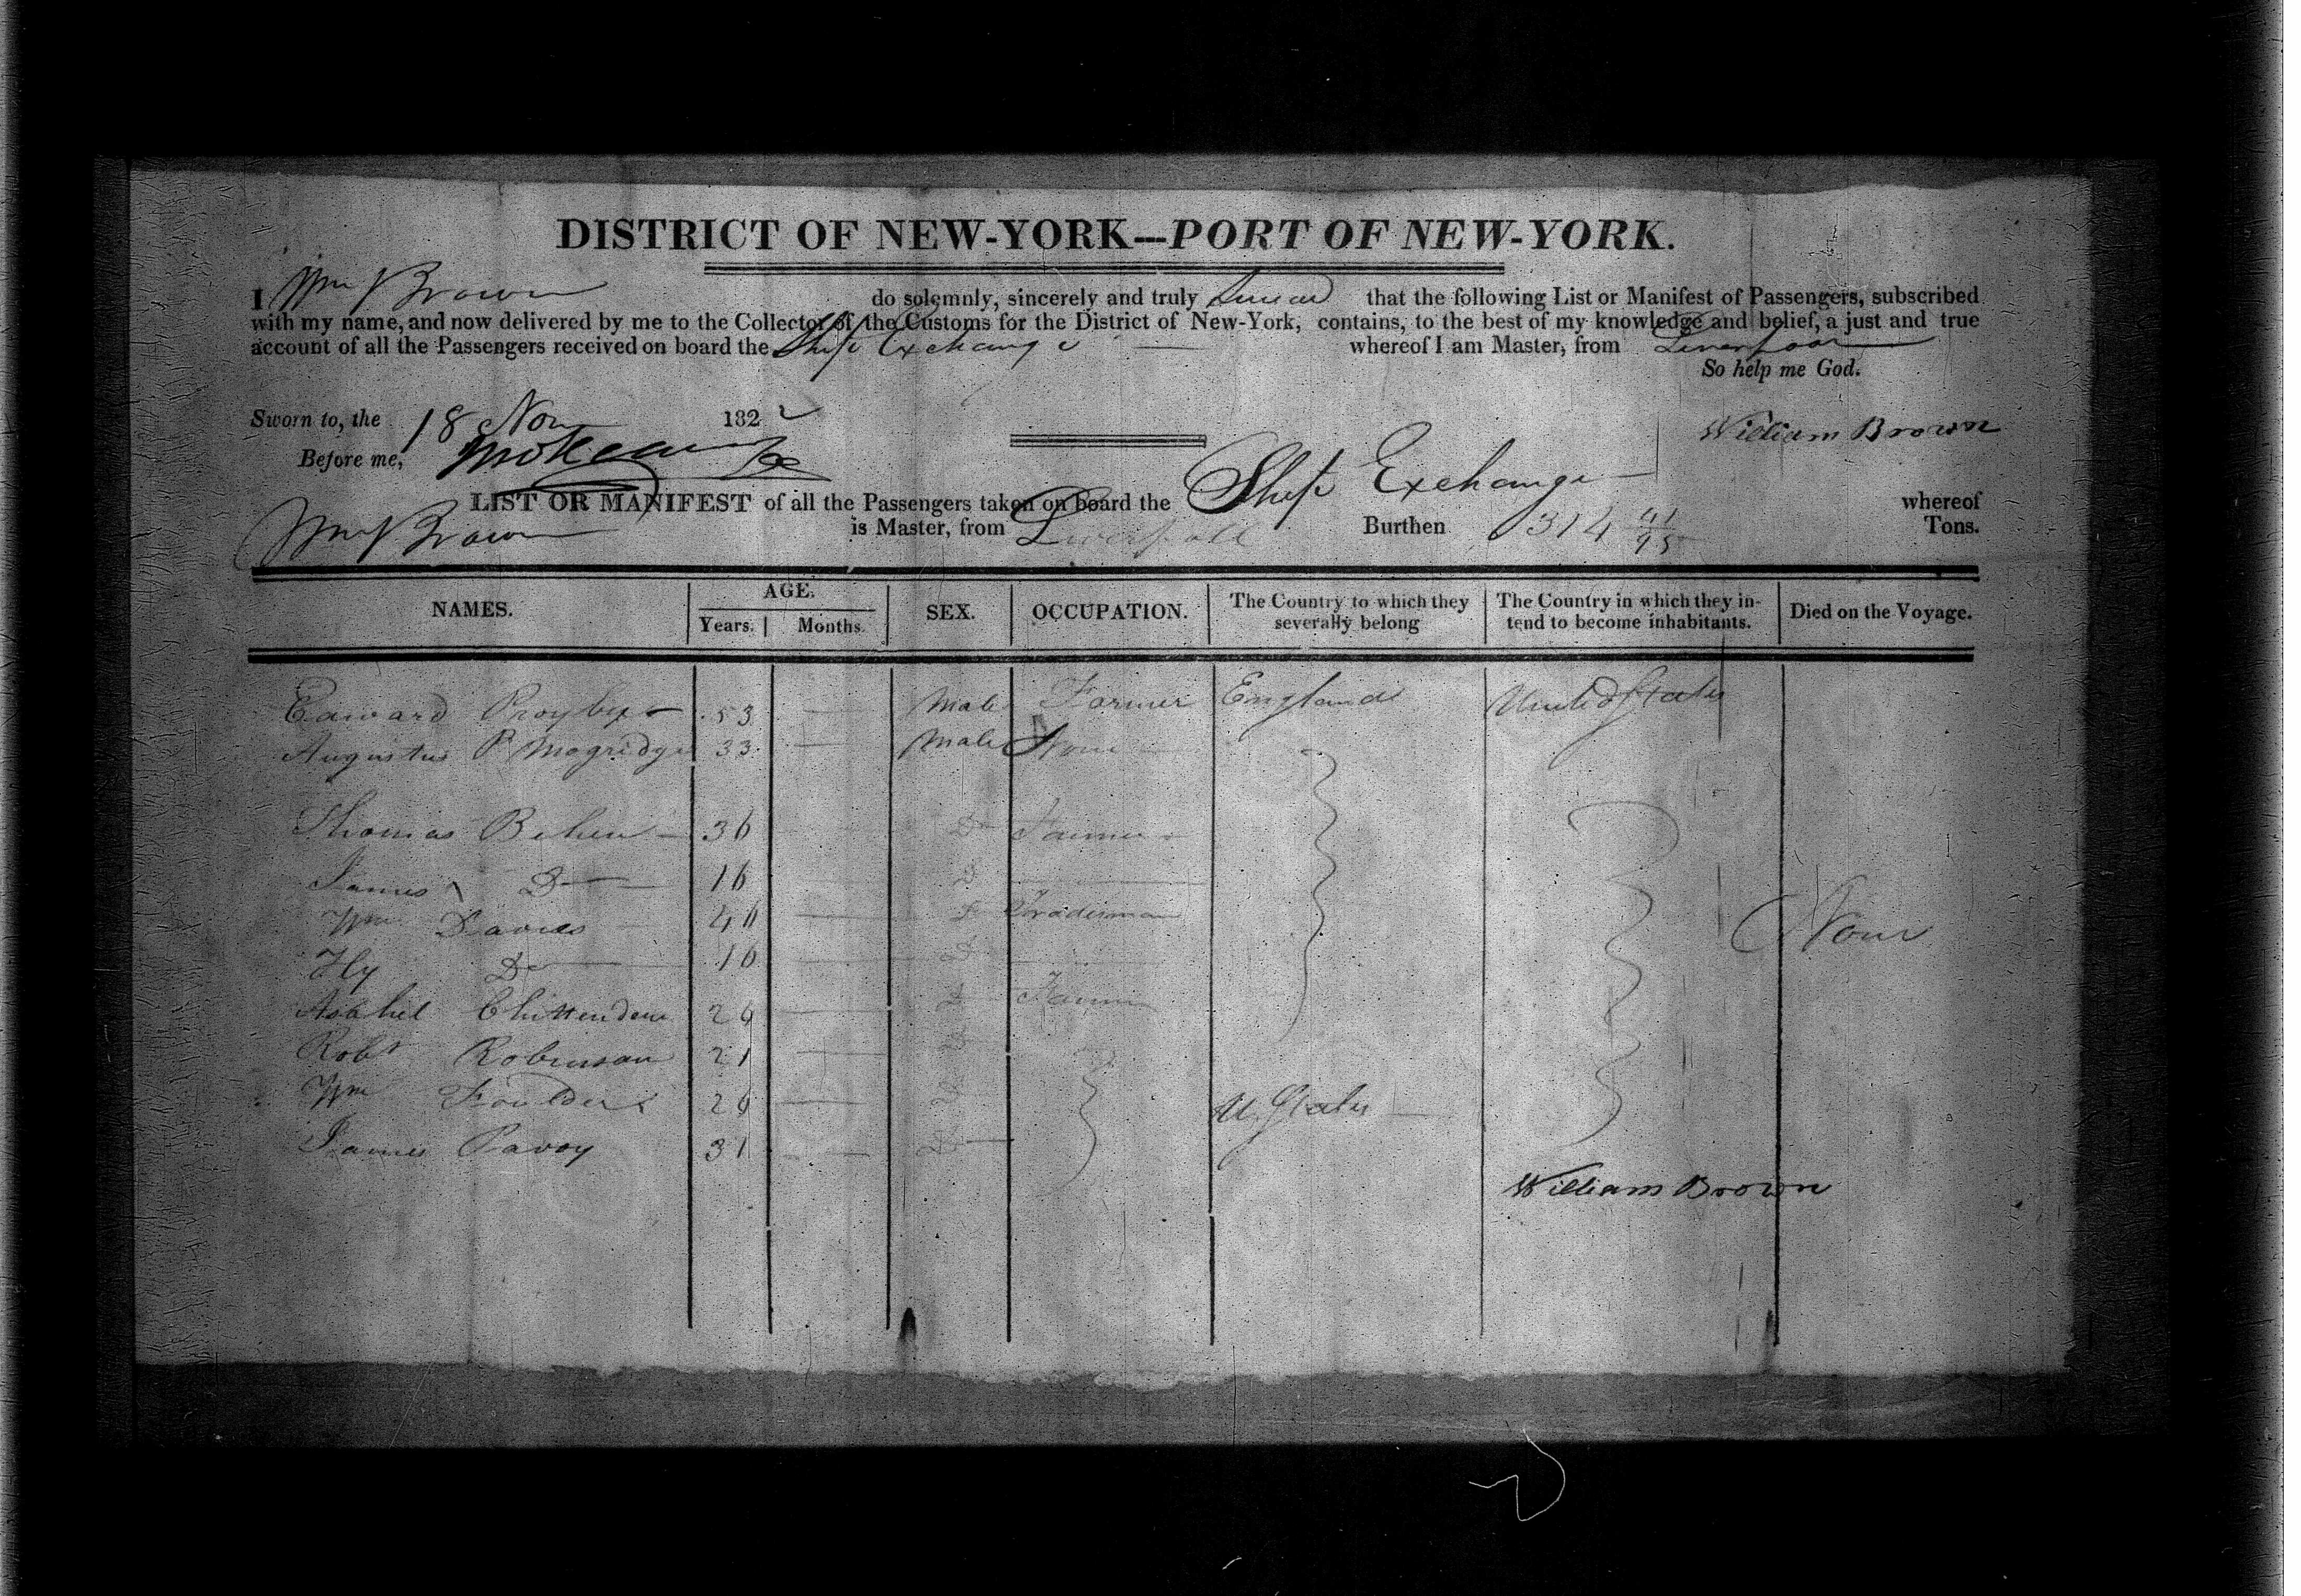 DISTRICT OF NEW-YORK—PORT OF NEW-YORK.
I Wm Brown do solemnly, sincerely and truly swear that the following List or Manifest of Passengers, subscribed
with my name, and now delivered by me to the Collector of the Customs for the District of New-York, contains, to the best of my knowledge and belief, a just and true
account of all the Passengers received on board the Ship Exchange whereof I am Master, from Liverpool
So help me God.
Sworn to, the 18 Nov 1822
William Brown
Before me,
LIST OR MANIFEST of all the Passengers taken on board the Ship Exchange whereof
Wm Brown is Master, from Liverpool Burthen 314 41/95 Tons.
NAMES. AGE. Years. Months. SEX. OCCUPATION. The Country to which they severally belong The Country in which they intend to become inhabitants. Died on the Voyage.
Edward 53 — Male Farmer England United States
Augustus P Mogridge 33 — Male None
Thomas 36 Do Farmer
James Do 16 Do
Wm Davies 40 — Tradesman
Hy Do 16 — None
Asahel Chittenden 29 — Farmer
Robt Robinson 21 —
Wm Foulder 29 — U. States
James Pavoy 31 —
William Brown